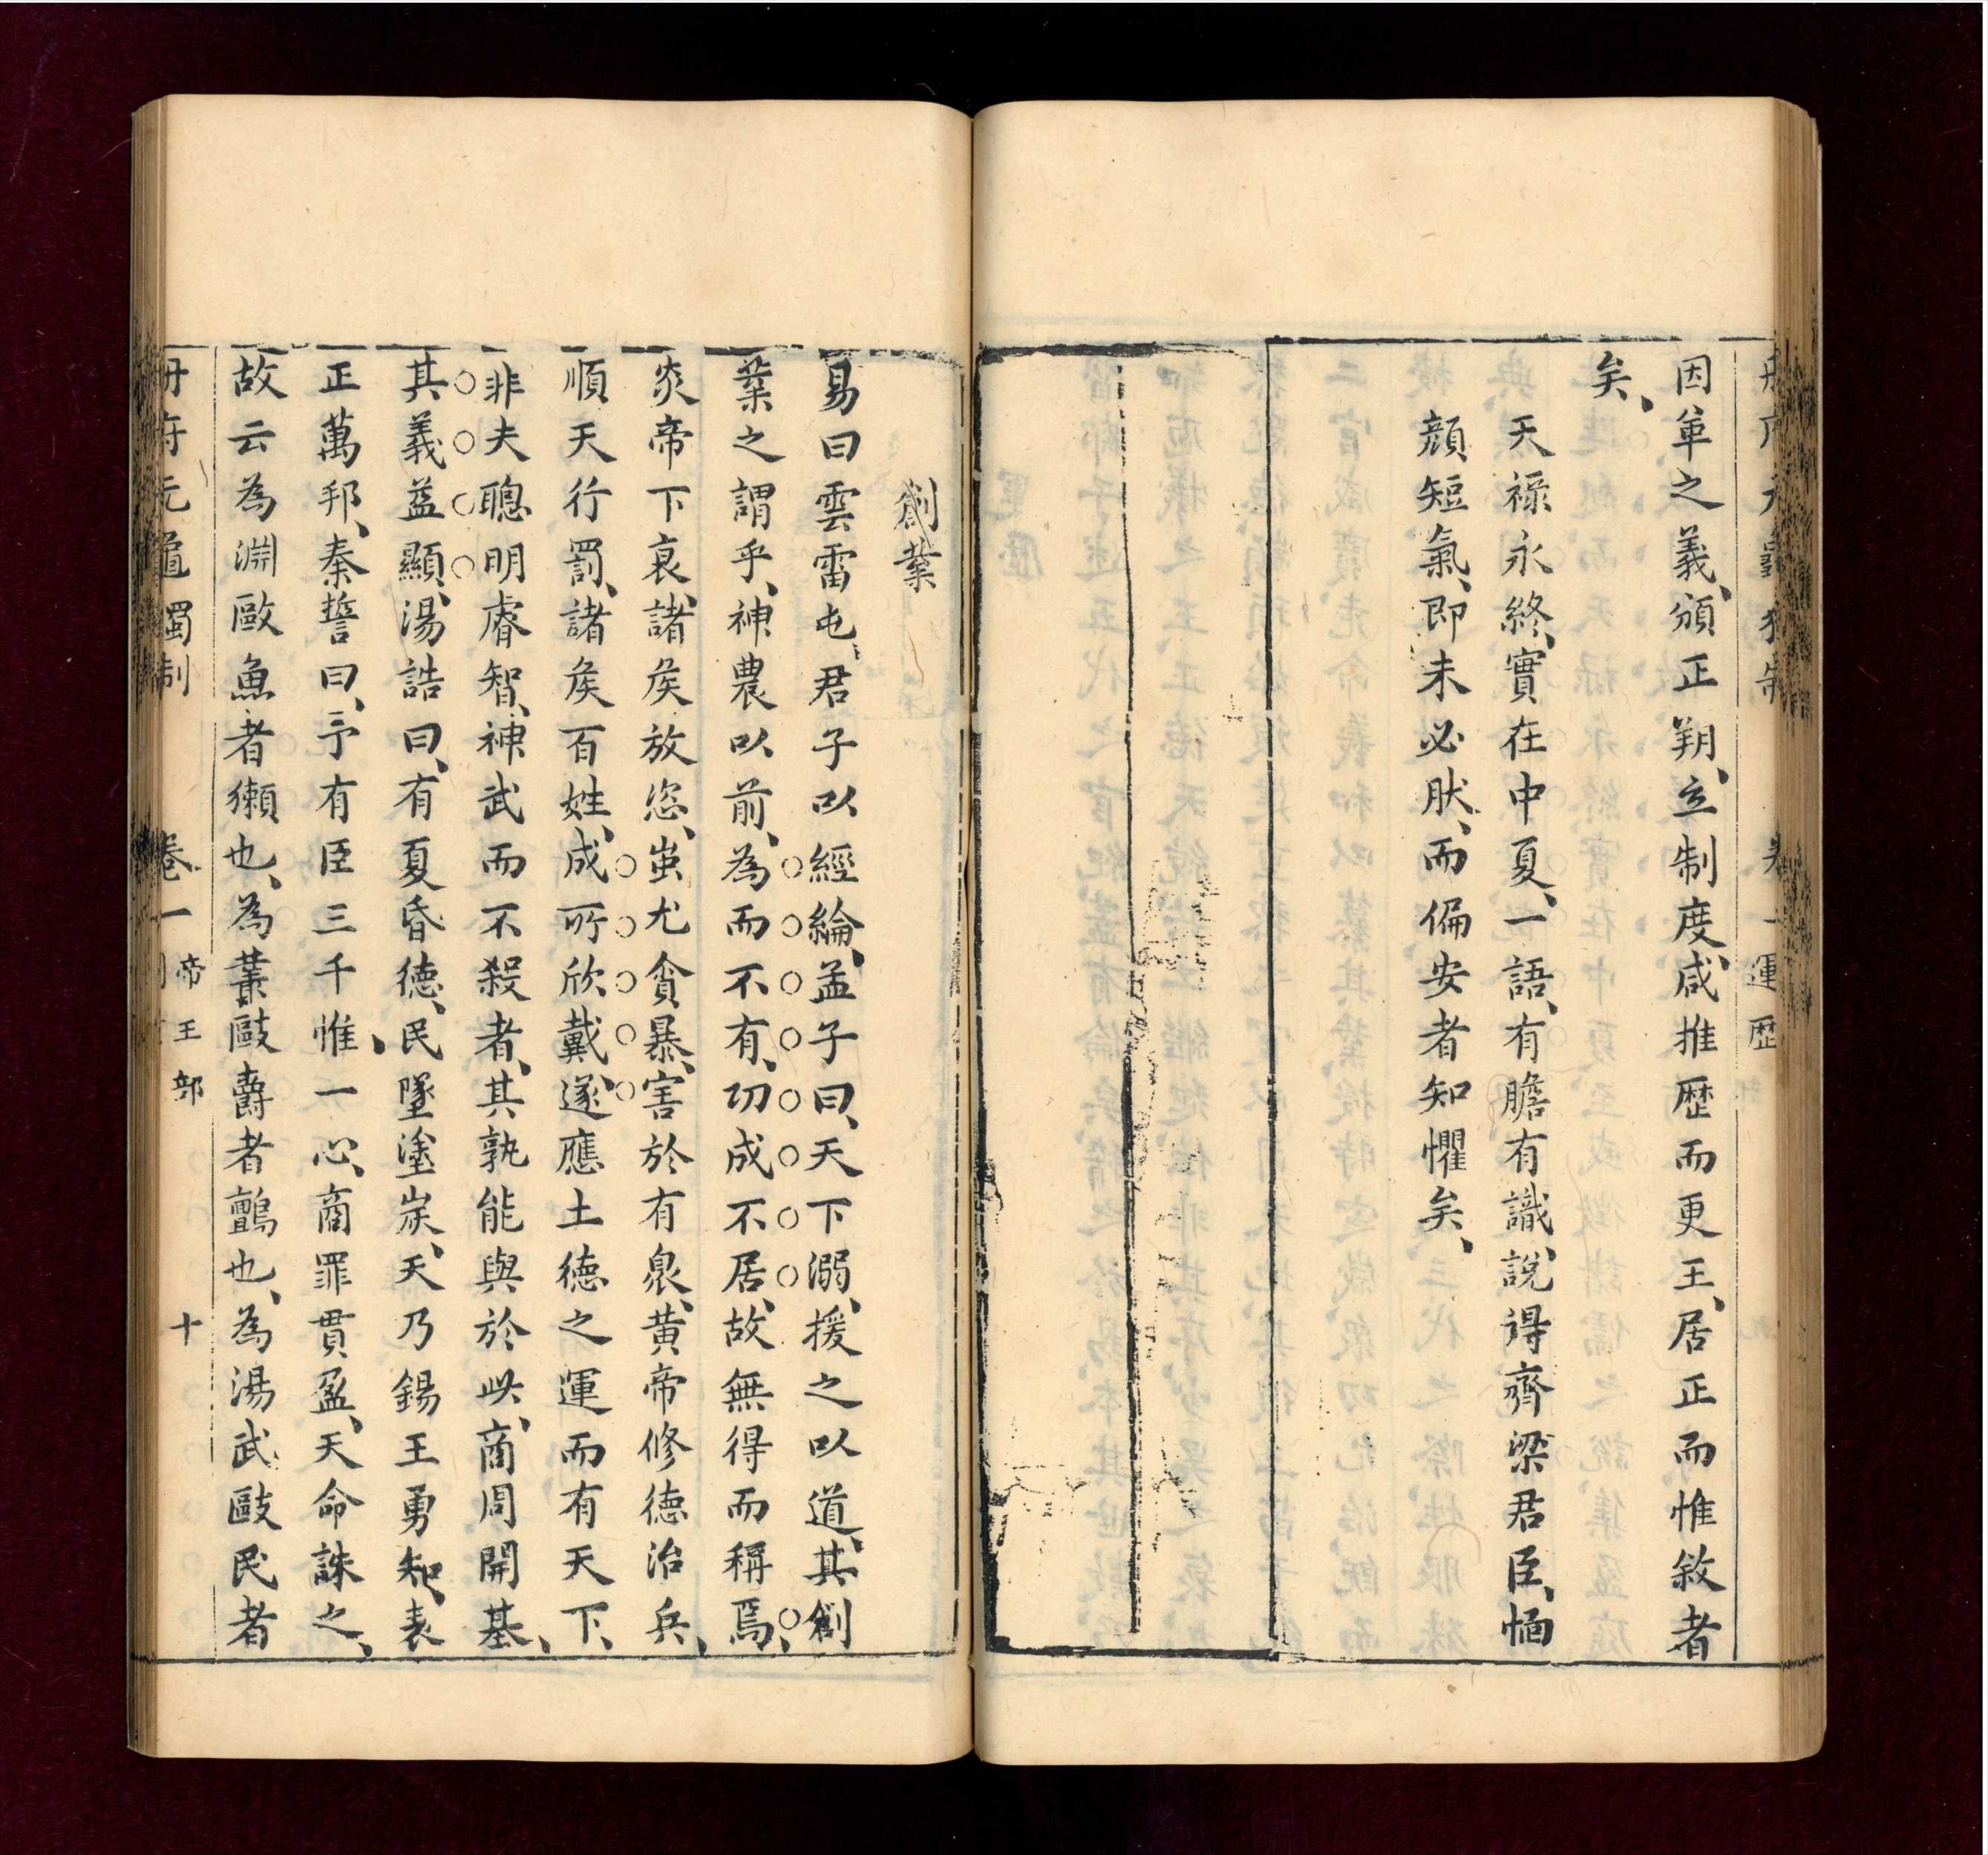 因革之義、頒正朔、立制度、咸推歴而更王、居正而惟敘者
矣、
天祿永終、實在中夏、一語、有膽有識、説得齊梁君臣、恓
顔短氣、即未必肰、而偏安者知懼矣、
創業
易曰雲雷屯、君子以經綸、孟子曰、天下溺、援之以道、其創
業之謂乎、神農以前、為而不有、功成不居、故無得而稱焉、
炎帝下衰、諸矦放恣、蚩尤貪暴、害於有衆、黄帝修德治兵、
順天行罰、諸矦百姓、咸所欣戴、遂應土德之運而有天下、
非夫聰明睿智、神武而不殺者、其孰能與於此、商周開基、
其義益顯、湯誥曰、有夏昏德、民墜塗炭、天乃錫王勇知、表
正萬邦、秦誓曰、予有臣三千惟、一心、商罪貫盈、天命誅之、
故云為淵敺魚者獺也、為叢敺爵者鸇也、為湯武敺民者
冊府元龜獨制 卷一 帝王部 十